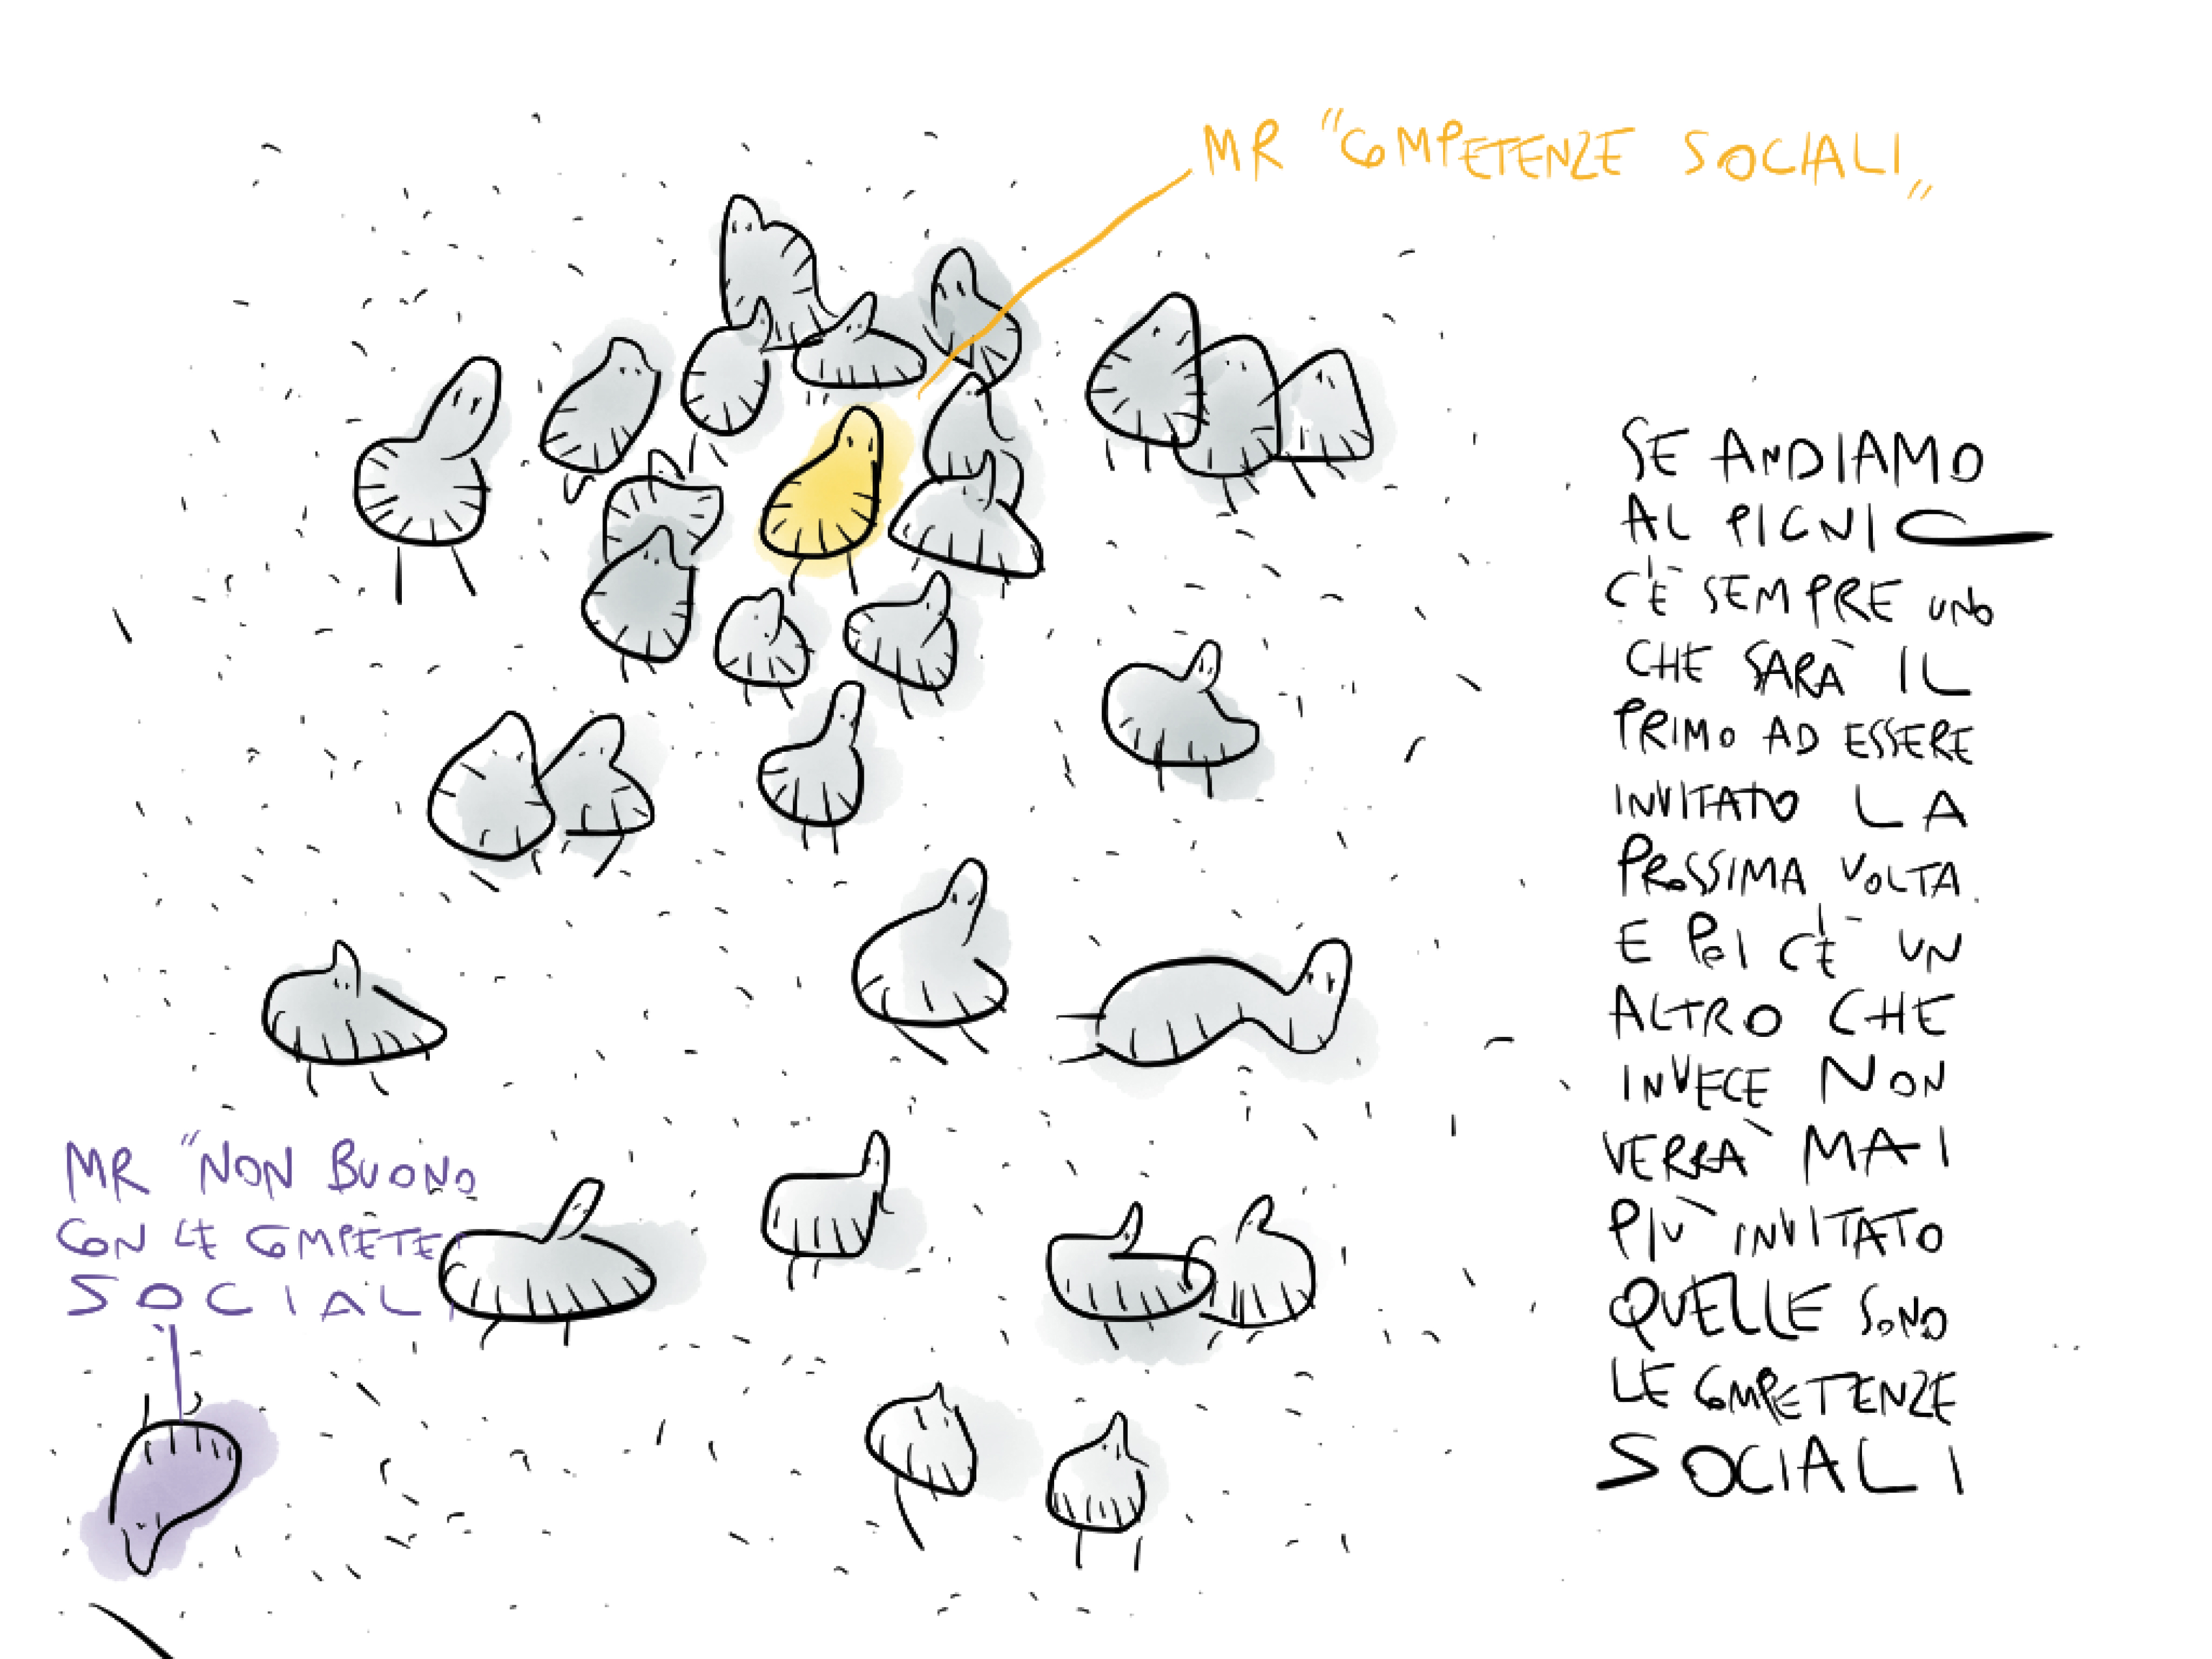 MR "COMPETENZE SOCIALI"
SE ANDIAMO
AL PICNIC
C'È SEMPRE UNO
CHE SARÀ IL
PRIMO AD ESSERE
INVITATO LA
PROSSIMA VOLTA
E POI C'È UN
ALTRO CHE
INVECE NON
VERRÀ MAI
PIÙ INVITATO
QUELLE SONO
LE COMPETENZE
SOCIALI
MR "NON BUONO
CON LE COMPETE
SOCIALI